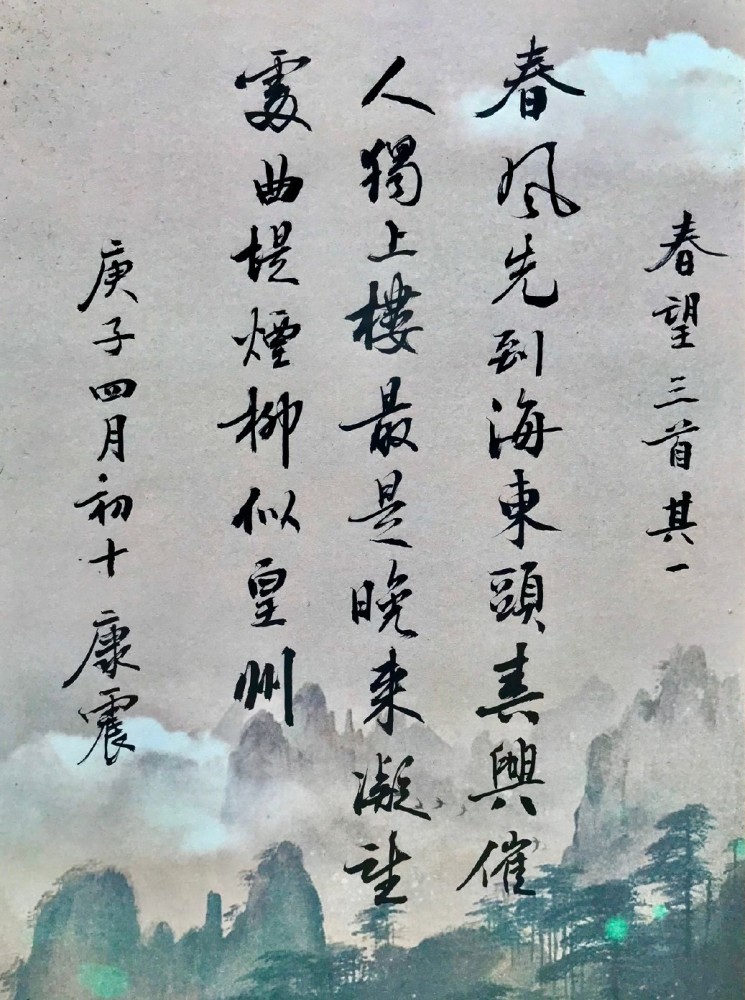 春望三首其一
春风先到海東頭春興催
人獨上樓最是晚來凝望
處曲堤煙柳似皇州
庚子四月初十 康震